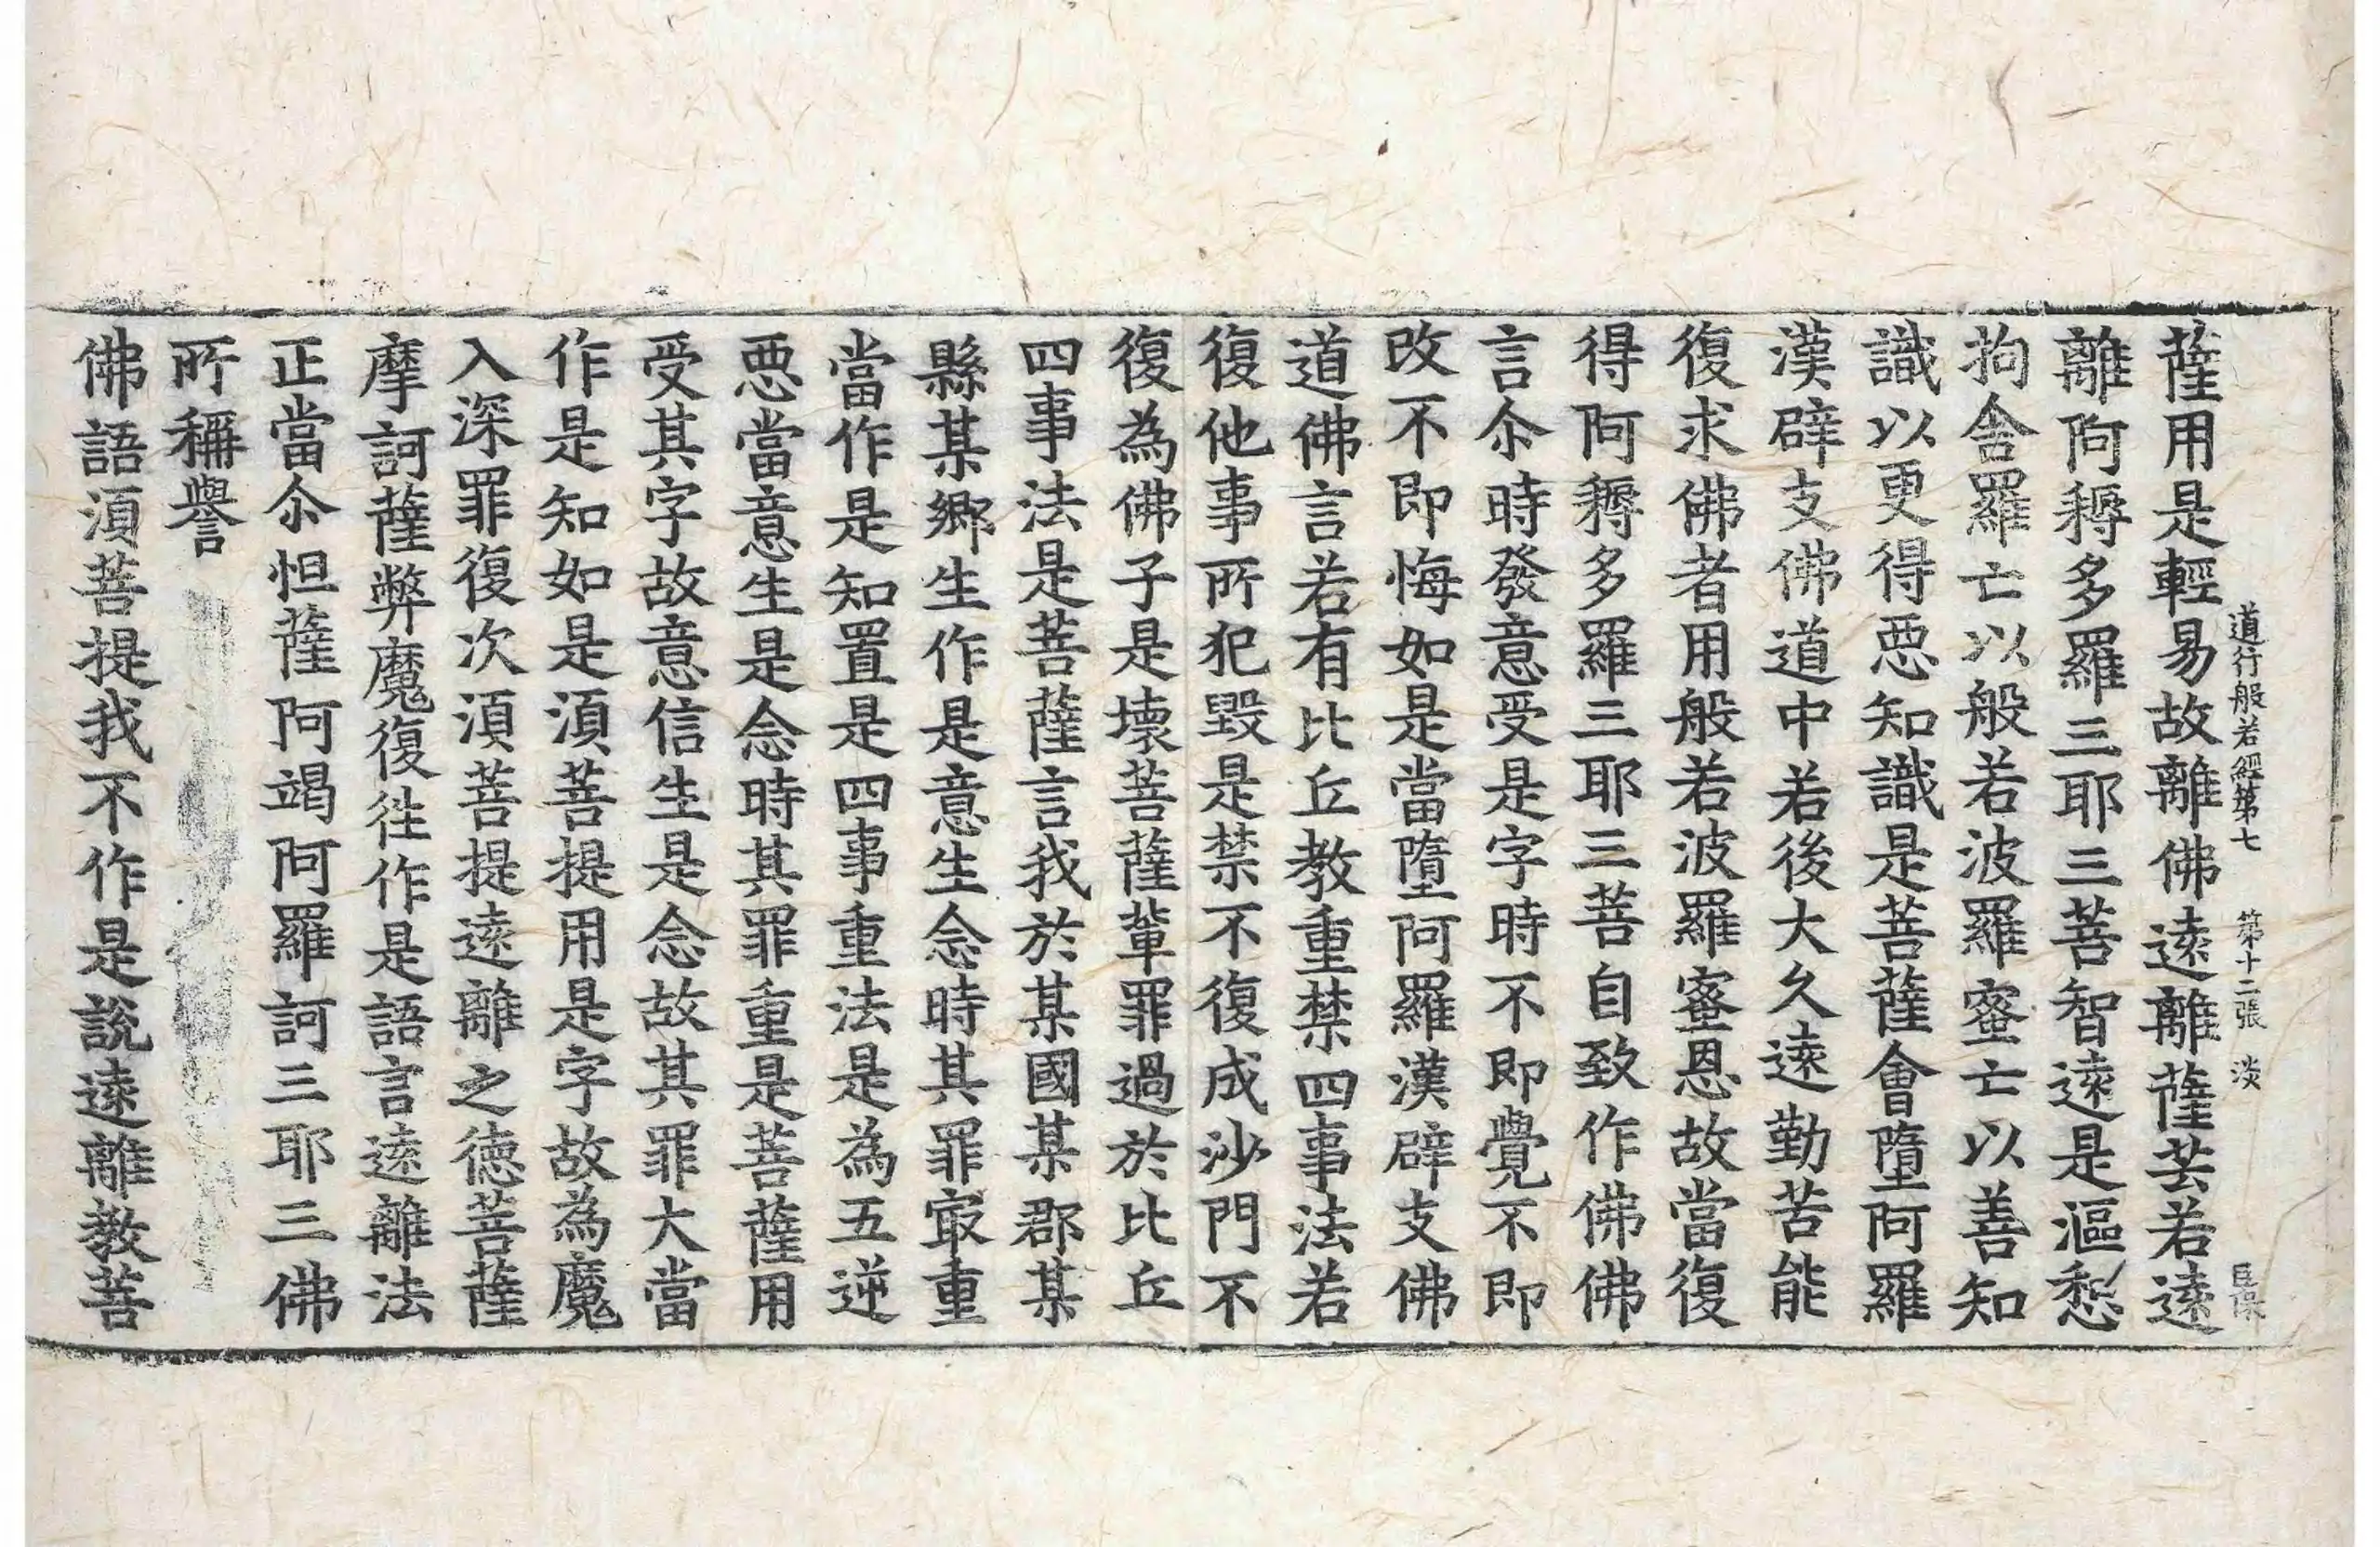 道行般若經第七 第十二張 淡
薩用是輕易故離佛遠離薩芸若遠
離阿耨多羅三耶三菩智遠是漚惒
拘舍羅亡以般若波羅蜜亡以善知
識以更得惡知識是菩薩會墮阿羅
漢辟支佛道中若後大久遠勤苦能
復求佛者用般若波羅蜜恩故當復
得阿耨多羅三耶三菩自致作佛佛
言尒時發意受是字時不即覺不即
改不即悔如是當墮阿羅漢辟支佛
道佛言若有比丘教重禁四事法若
復他事所犯毀是禁不復成沙門不
復為佛子是壞菩薩輩罪過於比丘
四事法是菩薩言我於某國某郡某
縣某鄉生作是意生念時其罪冣重
當作是知置是四事重法是為五逆
惡當意生是念時其罪重是菩薩用
受其字故意信生是念故其罪大當
作是知如是須菩提用是字故為魔
入深罪復次須菩提遠離之德菩薩
摩訶薩弊魔復徃作是語言遠離法
正當尒怛薩阿竭阿羅訶三耶三佛
所稱譽
佛語須菩提我不作是說遠離教菩